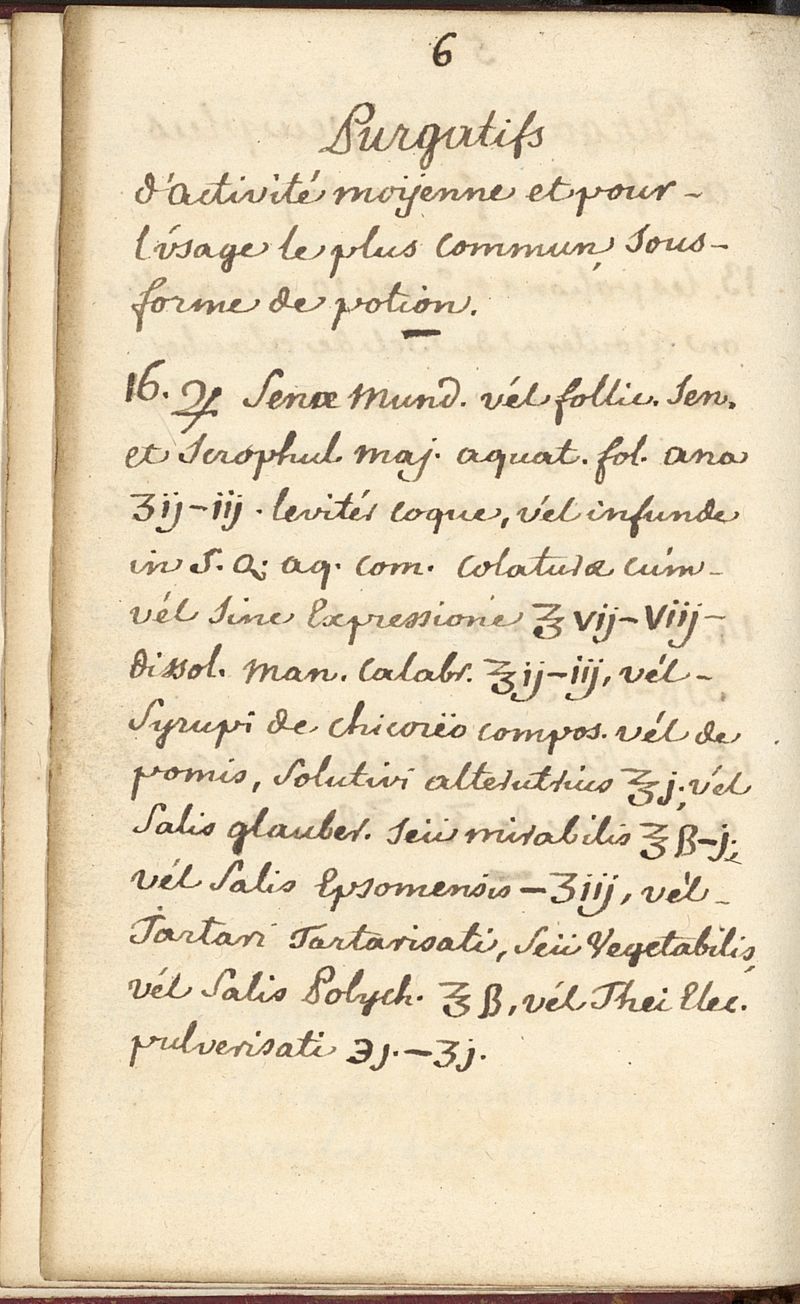 6
Purgatifs
d'activité moÿenne et pour-
l'úsage le plus commun, sous-
forme de potion.
16. ♃ Senæ mund. vél follic. Sen.
et Scrophul maj. aquat. fol. ana
ʒij-iij. levitér coque, vél infunde
in S. Q; aq. com. Colaturæ cúm-
vél Sine Expressione ℥vij-viij-
dissol. man. Calabr. ℥ij-iij, vél-
Syrupi de chicorëo compos. vél de
pomis, Solutivi alterutrius ℥j; vél
Salis glauber. seü mirabilis ℥ß-j;
vél Salis Epsomensis-ʒiij, vél-
Tartari Tartarisati, seü Vegetabilis,
vél Salis Polych. ℥ß, vél Thei Elec.
pulverisati ℈j.-ʒj.